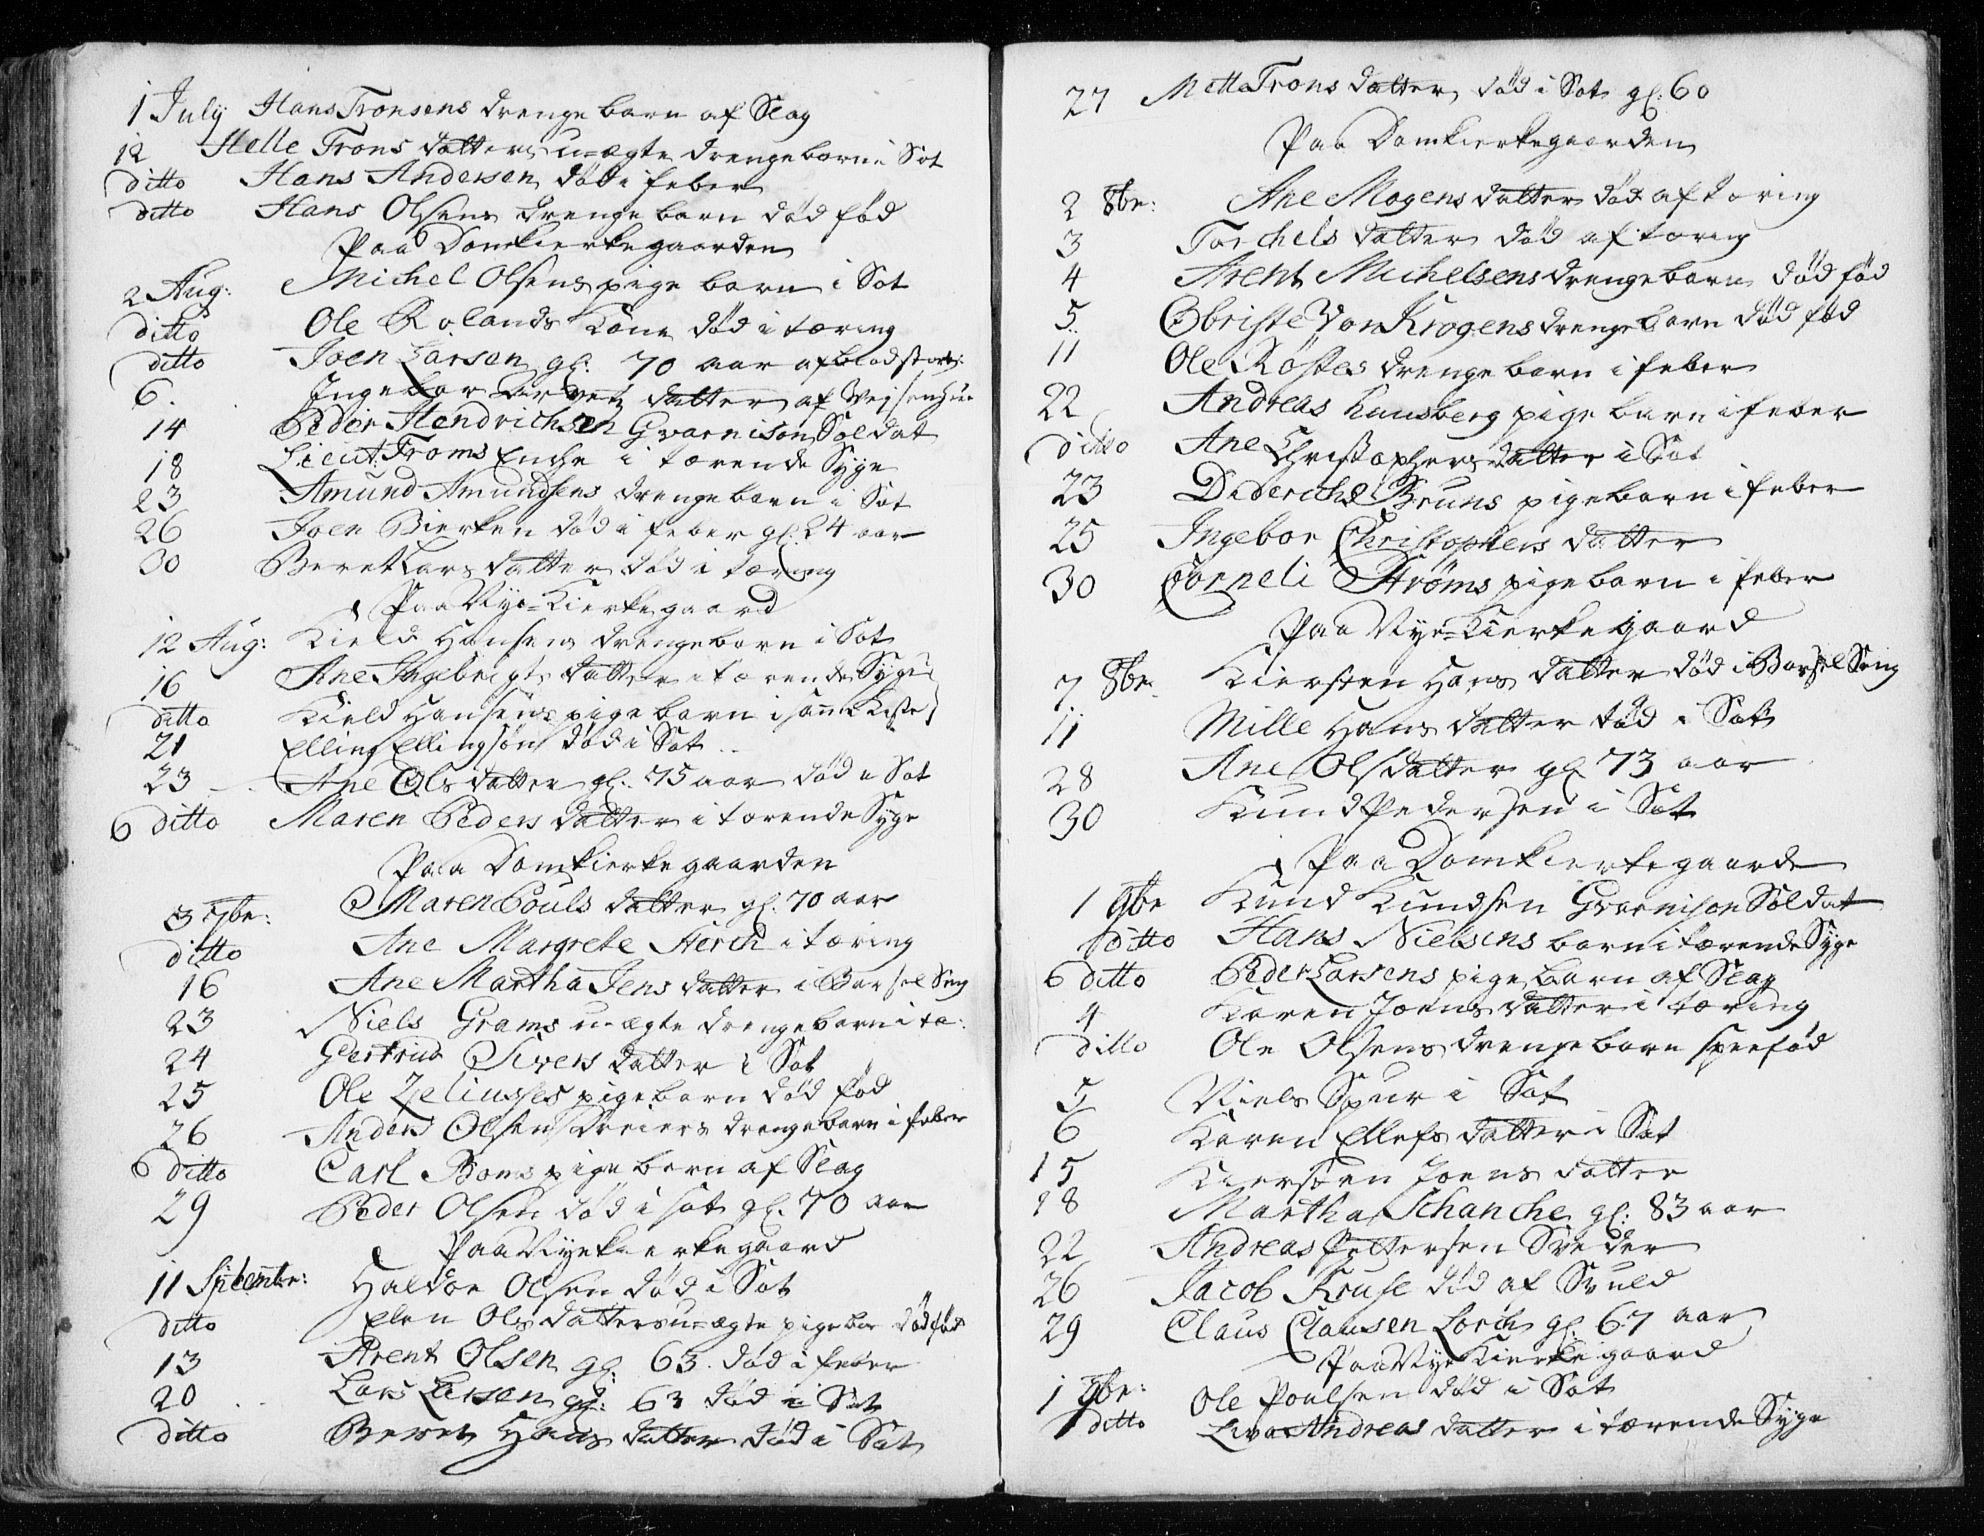 1 July Hans Tronsens drenge barn af Slag
12 Helle Trons datters u-ægte drengebarn i Sot
ditto Hans Andersen død i feber
ditto Hans Olsens drenge barn død fød
Paa Domkierkegaarden
2 Aug: Michel Olsens pige barn i Sot
ditto Ole Rolands Kone død i tæring
ditto Joen Larsen gl: 70 aar af blodstort:
6. Ingebor datter af
14 Peder Hendrichsen Gvarnison Soldat
18 Lieut: Froms Enche i tærende Syge
23 Amund Amundsens drengebarn i Sot
26 Joen Bierken død i feber gl: 24 aar
30 Beret Lars datter død i tæring
Paa Nye-Kierkegaard
12 Aug: Kield Hansens drengebarn i Sot
16 Ane Ingebrigts datter i tærende Syge
ditto Kield Hansens pige barn i samme Kiste
21 Elling Ellingsøn død i Sot
23 Ane Ols datter gl: 75 aar død i Sot
6 ditto Maren Peders datter i tærende Syge
Paa Domkierkegaarden
3 7br: Maren Pouls datter gl: 70 aar
ditto Ane Margrete Herch i tæring
16 Ane Martha Jens datter i Barsel Seng
23 Niels Grams u-ægte drengebarn i tæ:
24 Gertrud Sivers datter i Sot
25 Ole Zeliusses pigebarn død fød
26 Anders Olsen Dreiers drengebarn i feber
6 ditto Carl Boms pige barn af Slag
29 Peder Olsen død i Sot gl: 70 aar
Paa Nyekierkegaard
11 September: Haldor Olsen død i Sot
ditto Elen Ols datters u-ægte pige bar død fød
13 Arent Olsen gl: 63. død i feber
20 Lars Larsen gl: 63 død i Sot
ditto Beret Hans datter død i Sot
27 Mette Trons datter død i Sot gl: 60
Paa Domkierkegaarden
2 8br: Ane Mogens datter død af tæring
3 Torchels datter død af tæring
4 Arent Michelsens drengebarn død fød
5. Obriste Von Krogens drengebarn død fød
11 Ole Røstes drenge barn i feber
22 Andreas Kunsberg pige barn i feber
ditto Ane Christophers datter i Sot
23 Diderichs Bruns pigebarn i feber
25 Ingebor Christophers datter
30 Corneli Strøms pigebarn i feber
Paa Nye-Kierkegaard
7 8br. Kiersten Hans datter død i Barsel Seng
11 Mille Hans datter død i Sot
28 Ane Olsdatter gl 73 aar
30 Knud Pedersen i Sot
Paa Domkierkegaard
1 9br Knud Knudsen Gvarnison Soldat
ditto Hans Nielsens barn i tærende Syge
6 ditto Peder Larsens pige barn af Slag
4 Karen Joens datter i tæring
ditto Ole Olsens drenge barn spæfød
5 Niels Spur i Sot
6 Karen Ellefs datter i Sot
15 Kiersten Joens datter
18 Martha Schanche gl: 83 aar
22 Andreas Pettersen Sveder
26 Jacob Kruse død af Svuld
29 Claus Clausen Lorch gl: 67 aar
Paa Nye Kierkegaard
1 9br: Ole Poulsen død i Sot
ditto Andreas datter i tærende Syge